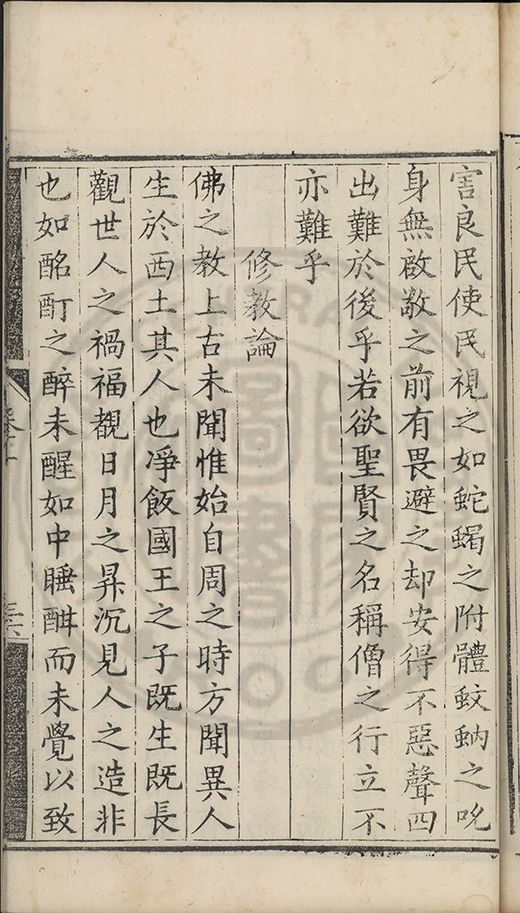 害良民使民視之如蛇蝎之附體蚊蚋之吮
身無啟敬之前有畏避之却安得不惡聲四
出難於後乎若欲聖賢之名稱僧之行立不
亦難乎
修教論
佛之教上古未聞惟始自周之時方聞異人
生於西土其人也淨飯國王之子既生既長
觀世人之禍福覩日月之昇沉見人之造非
也如酩酊之醉未醒如中睡酣而未覺以致
卷十